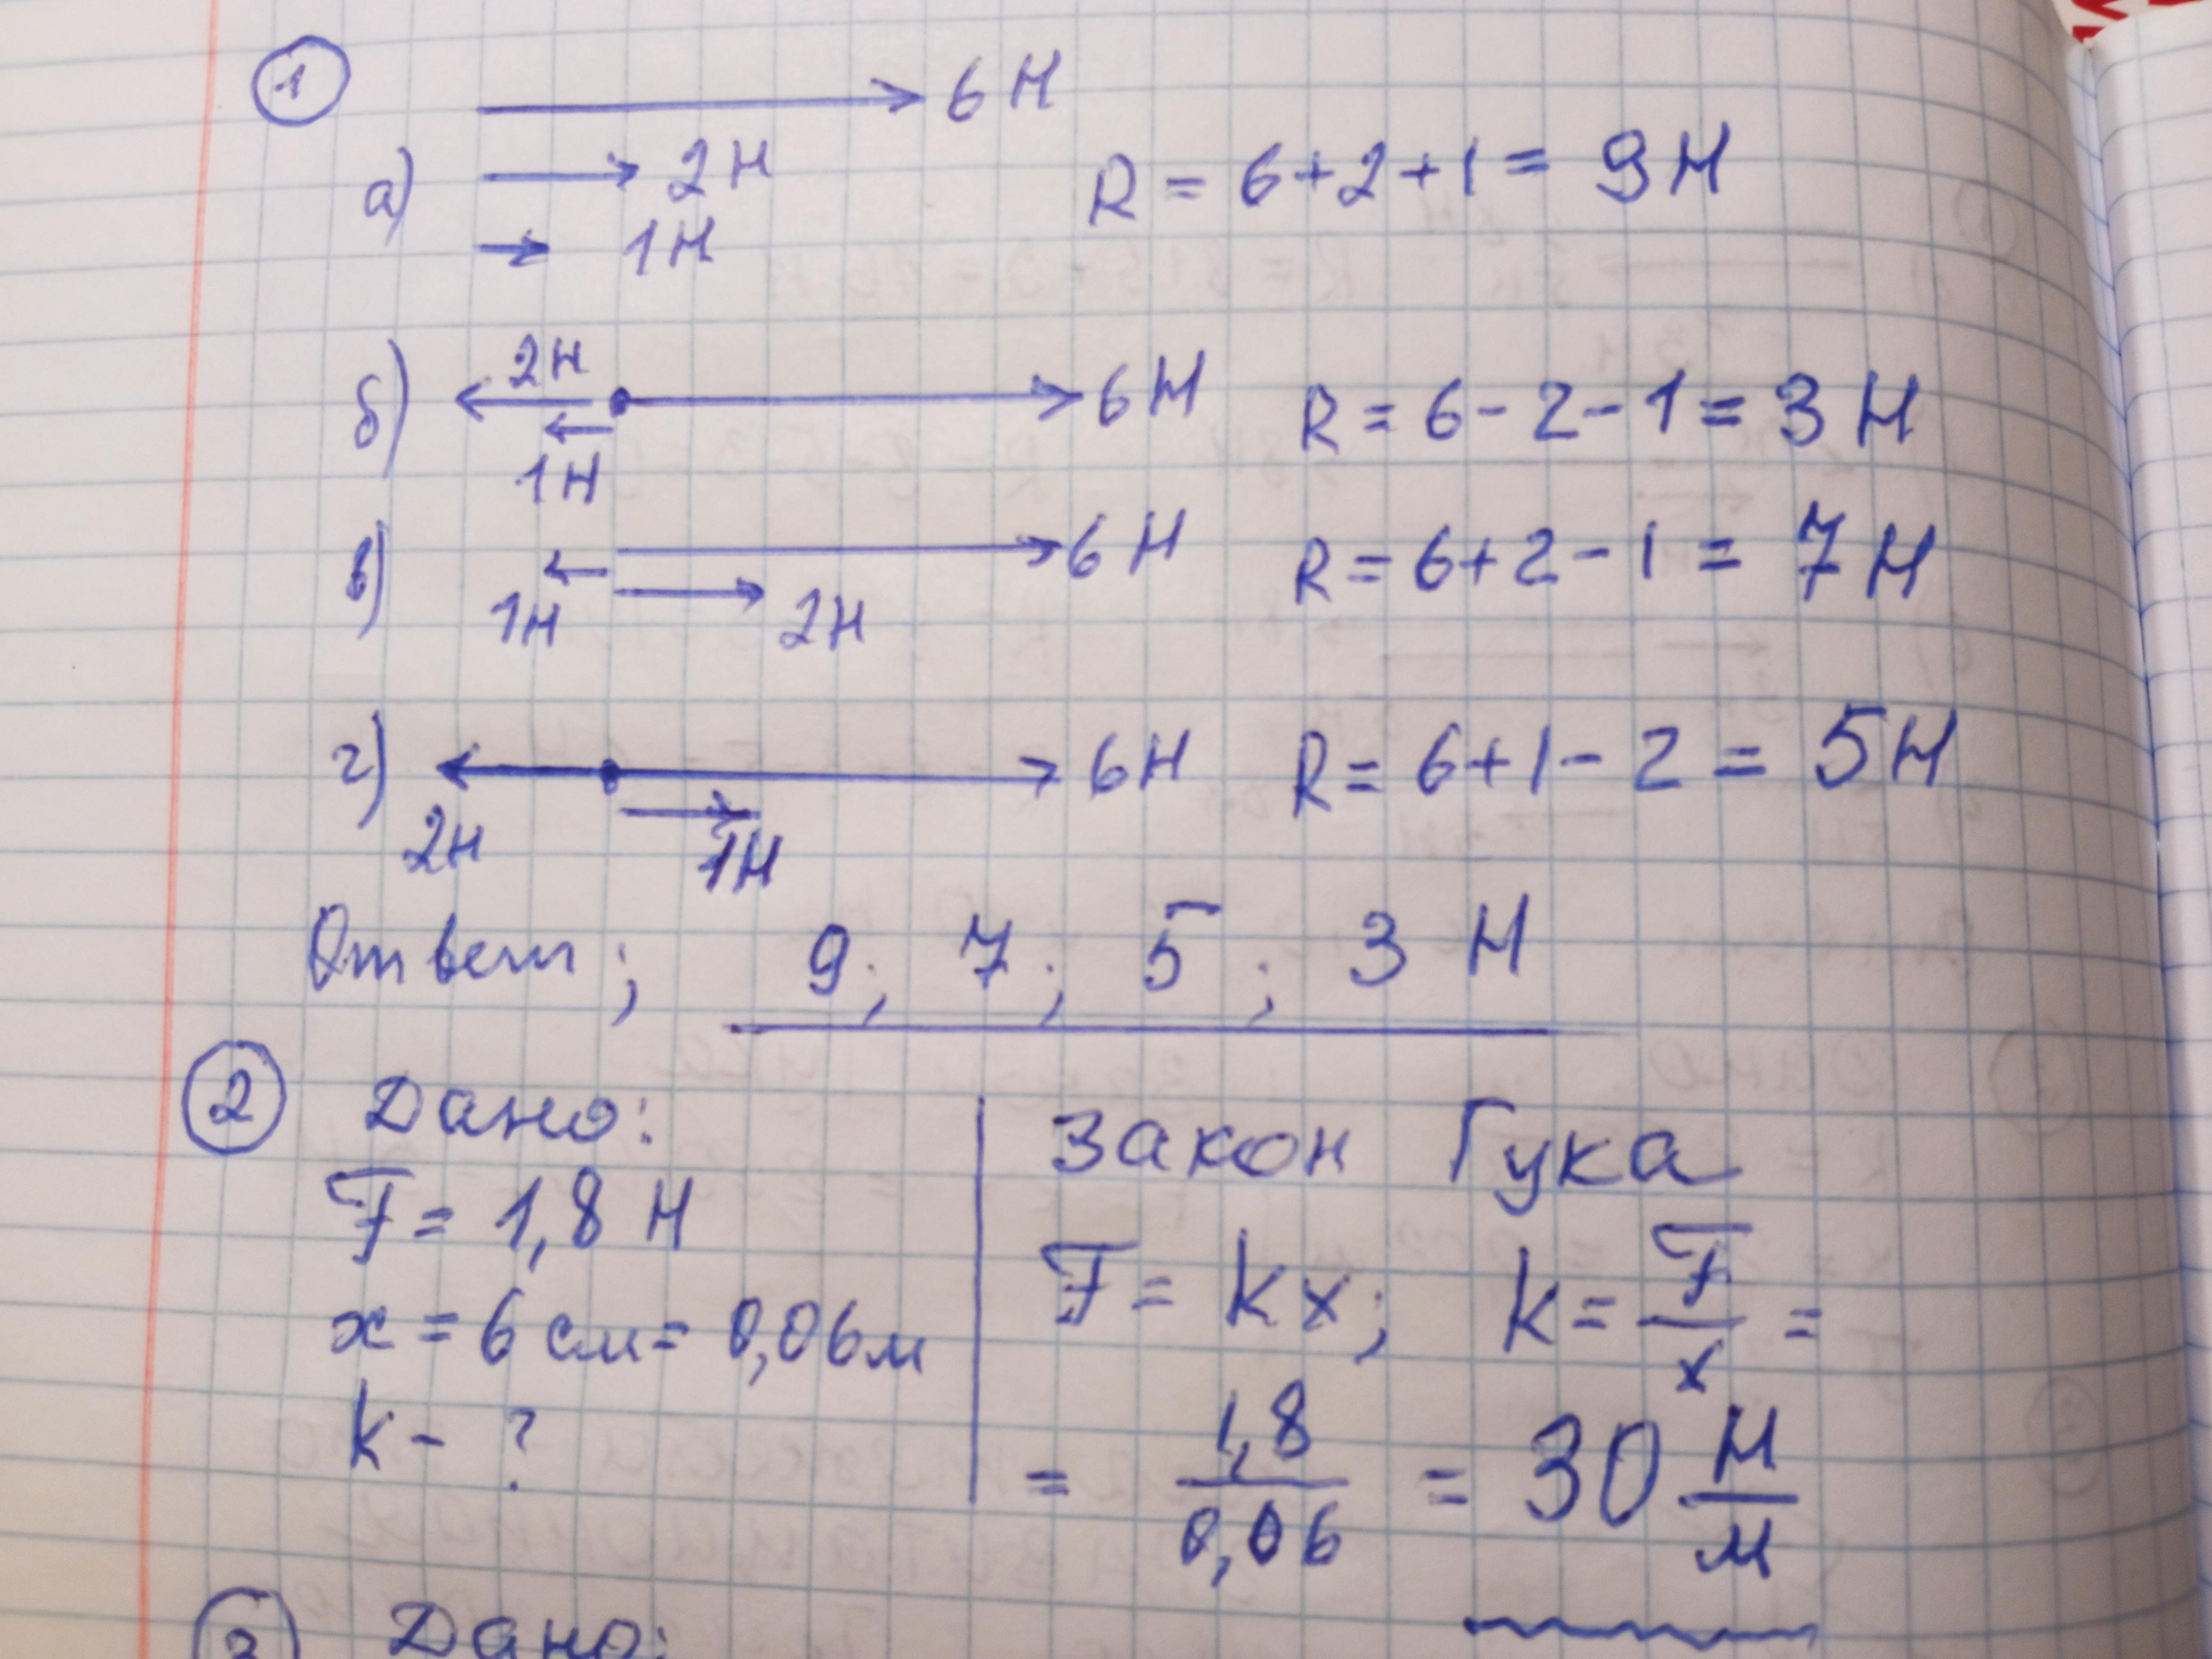 1
6 Н
а) 2 Н R = 6 + 2 + 1 = 9 Н
1 Н
б) 2Н 6 Н R = 6 - 2 - 1 = 3 Н
1Н
в) 6 Н R = 6 + 2 - 1 = 7 Н
1Н 2Н
г) 6Н R = 6 + 1 - 2 = 5 Н
2Н 1Н
Ответ; 9; 7; 5; 3 Н
2 Дано:
F = 1,8 Н
x = 6 см = 0,06 м
k - ?
Закон Гука
F = kx; k = F/x =
= 1,8/0,06 = 30 Н/м
3 Дано: